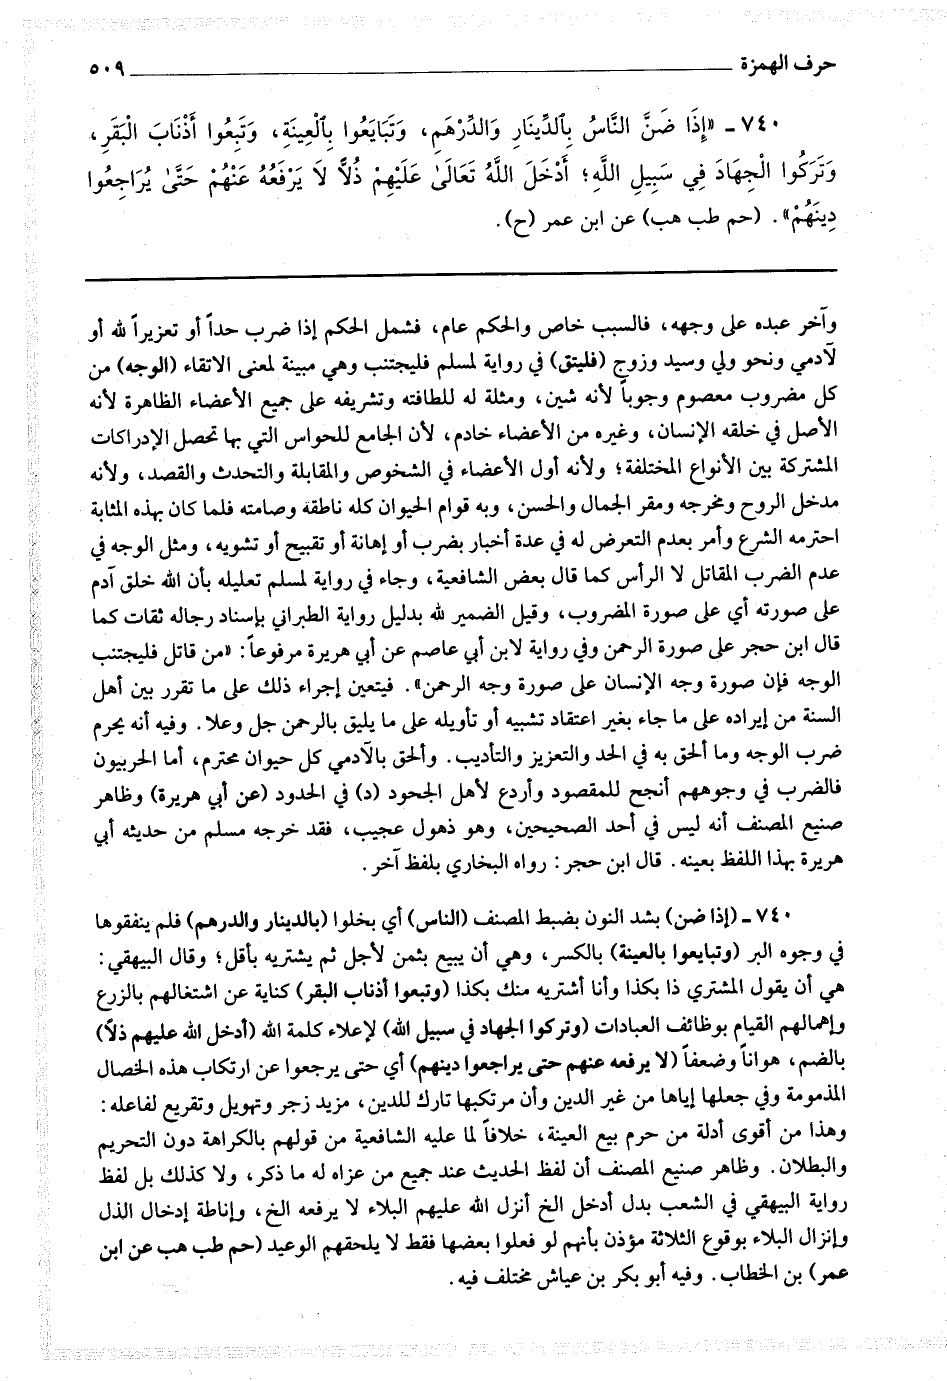 حرف الهمزة ٥٠٩
٧٤٠ ـ «إِذَا ضَنَّ النَّاسُ بِالدِّينَارِ وَالدِّرْهَمِ، وَتَبَايَعُوا بِالْعِينَةِ، وَتَبِعُوا أَذْنَابَ الْبَقَرِ،
وَتَرَكُوا الْجِهَادَ فِي سَبِيلِ اللَّهِ؛ أَدْخَلَ اللَّهُ تَعَالَىٰ عَلَيْهِمْ ذُلًّا لَا يَرْفَعُهُ عَنْهُمْ حَتَّىٰ يُرَاجِعُوا
دِينَهُمْ». (حم طب هب) عن ابن عمر (ح).
وآخر عبده على وجهه، فالسبب خاص والحكم عام، فشمل الحكم إذا ضرب حداً أو تعزيراً لله أو
لآدمي ونحو ولي وسيد وزوج (فليتق) في رواية لمسلم فليجتنب وهي مبينة لمعنى الاتقاء (الوجه) من
كل مضروب معصوم وجوباً لأنه شين، ومثلة له للطافته وتشريفه على جميع الأعضاء الظاهرة لأنه
الأصل في خلقه الإنسان، وغيره من الأعضاء خادم، لأن الجامع للحواس التي بها تحصل الإدراكات
المشتركة بين الأنواع المختلفة؛ ولأنه أول الأعضاء في الشخوص والمقابلة والتحدث والقصد، ولأنه
مدخل الروح ومخرجه ومقر الجمال والحسن، وبه قوام الحيوان كله ناطقه وصامته فلما كان بهذه المثابة
احترمه الشرع وأمر بعدم التعرض له في عدة أخبار بضرب أو إهانة أو تقبيح أو تشويه، ومثل الوجه في
عدم الضرب المقاتل لا الرأس كما قال بعض الشافعية، وجاء في رواية لمسلم تعليله بأن الله خلق آدم
على صورته أي على صورة المضروب، وقيل الضمير لله بدليل رواية الطبراني بإسناد رجاله ثقات كما
قال ابن حجر على صورة الرحمن وفي رواية لابن أبي عاصم عن أبي هريرة مرفوعاً: «من قاتل فليجتنب
الوجه فإن صورة وجه الإنسان على صورة وجه الرحمن». فيتعين إجراء ذلك على ما تقرر بين أهل
السنة من إيراده على ما جاء بغير اعتقاد تشبيه أو تأويله على ما يليق بالرحمن جل وعلا. وفيه أنه يحرم
ضرب الوجه وما ألحق به في الحد والتعزيز والتأديب. وألحق بالآدمي كل حيوان محترم، أما الحربيون
فالضرب في وجوههم أنجح للمقصود وأردع لأهل الجحود (د) في الحدود (عن أبي هريرة) وظاهر
صنيع المصنف أنه ليس في أحد الصحيحين، وهو ذهول عجيب، فقد خرجه مسلم من حديثه أبي
هريرة بهذا اللفظ بعينه. قال ابن حجر: رواه البخاري بلفظ آخر.
٧٤٠ ـ (إذا ضن) بشد النون بضبط المصنف (الناس) أي بخلوا (بالدينار والدرهم) فلم ينفقوها
في وجوه البر (وتبايعوا بالعينة) بالكسر، وهي أن يبيع بثمن لأجل ثم يشتريه بأقل؛ وقال البيهقي:
هي أن يقول المشتري ذا بكذا وأنا أشتريه منك بكذا (وتبعوا أذناب البقر) كناية عن اشتغالهم بالزرع
وإهمالهم القيام بوظائف العبادات (وتركوا الجهاد في سبيل الله) لإعلاء كلمة الله (أدخل الله عليهم ذلاً)
بالضم، هواناً وضعفاً (لا يرفعه عنهم حتى يراجعوا دينهم) أي حتى يرجعوا عن ارتكاب هذه الخصال
المذمومة وفي جعلها إياها من غير الدين وأن مرتكبها تارك للدين، مزيد زجر وتهويل وتقريع لفاعله:
وهذا من أقوى أدلة من حرم بيع العينة، خلافاً لما عليه الشافعية من قولهم بالكراهة دون التحريم
والبطلان. وظاهر صنيع المصنف أن لفظ الحديث عند جميع من عزاه له ما ذكر، ولا كذلك بل لفظ
رواية البيهقي في الشعب بدل أدخل الخ أنزل الله عليهم البلاء لا يرفعه الخ، وإناطة إدخال الذل
وإنزال البلاء بوقوع الثلاثة مؤذن بأنهم لو فعلوا بعضها فقط لا يلحقهم الوعيد (حم طب هب عن ابن
عمر) بن الخطاب. وفيه أبو بكر بن عياش مختلف فيه.